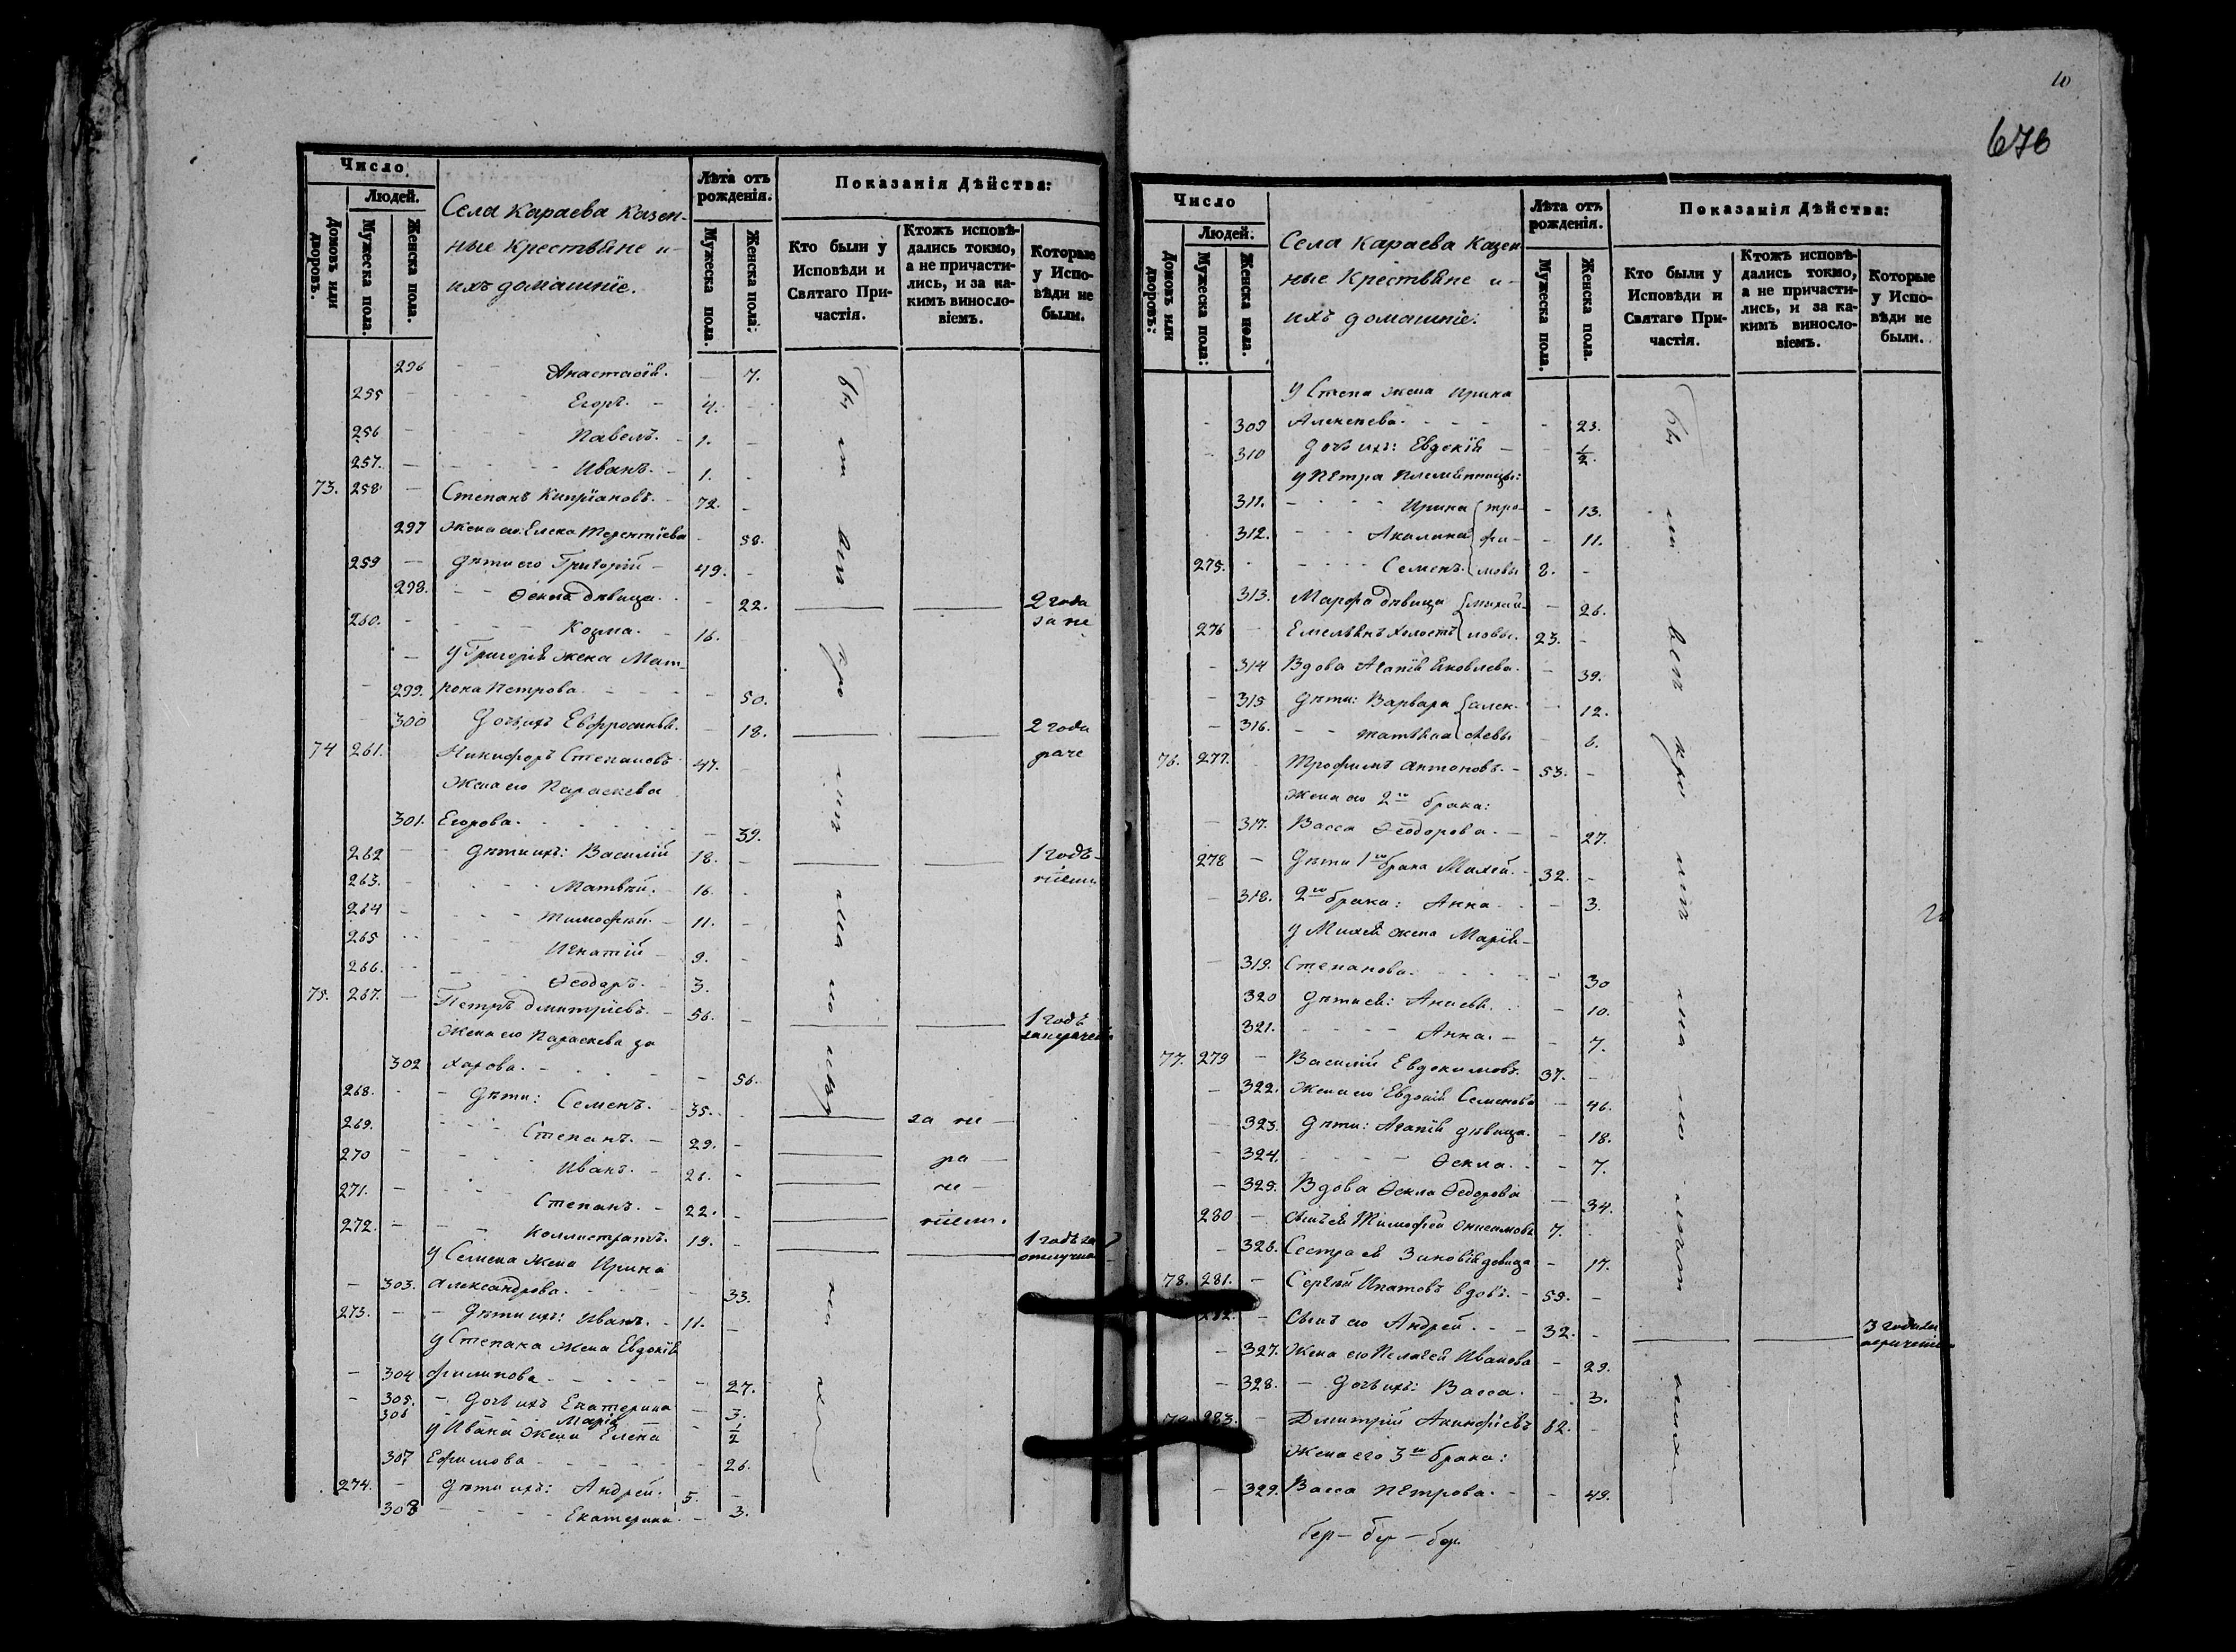 Число
Людей.
Домовъ или дворовъ.
Мужеска пола.
Женска пола.
Села Караева Казен-
ные Крестьяне и
ихъ домашніе.
Лѣта отъ рожденія.
Мужеска пола.
Женска пола:
Показанія Дѣйства:
Кто были у Исповѣди и Святаго Причастія.
Ктожъ исповѣдались токмо, а не причастились, и за какимъ винословіемъ.
Которые у Исповѣди не были.
296 Анастасія. 7.
255 Егоръ. 4.
256 Павелъ. 1.
257. Иванъ. 1.
73. 258 Степанъ Кипріановъ. 72.
297 Жена его Елена Терентіева 58.
259 Дѣти его Григорій 49.
298. Ѳекла дѣвица. 22. 2 года
260. Козма. 16. за не
У Григорія жена Мат-
299. рона Петрова 50.
300 Дочь ихъ Евфросинья. 18. 2 года
74 261. Никифоръ Степановъ 47. раче
Жена его Параскева
301. Егорова. 39.
262 Дѣти ихъ: Василій 18. 1 годъ
263. Матвѣй. 16. ніемъ
264 Тимофѣй. 11.
265 Игнатій 9.
266. Ѳеодоръ. 3.
75. 267. Петръ Дмитріевъ. 56. 1 годъ
Жена его Параскева За
302 харова. 56.
268. Дѣти: Семенъ. 35. за не
269. Степанъ. 29. ра
270 Иванъ. 26. че
271. Степанъ. 22. ніемъ.
272. Коллистратъ. 19. 1 годъ за
У Семена жена Ирина
303. Александрова. 33.
273. Дѣти ихъ: Иванъ. 11.
У Степана жена Евдокія
304 Филипова 27.
305. Дочь ихъ Екатерина 3.
306 Марія ½
У Ивана жена Елена
307 Ефимова 26.
274. Дѣти ихъ: Андрей. 5.
308 Екатерина. 3.
10
676
Число
Людей.
Домовъ или дворовъ:
Мужеска пола:
Женска пола.
Села Караева Казен
ные Крестьяне и
ихъ домашніе.
Лѣта отъ рожденія.
Мужеска пола.
Женска пола.
Показанія Дѣйства:
Кто были у Исповѣди и Святаго Причастія.
Ктожъ исповѣдались токмо, а не причастились, и за какимъ винословіемъ.
Которые у Исповѣди не были.
У Степа жена Ирина
309 Алексеева. 23.
310 Дочь ихъ: Евдокія ½.
У Петра племянницы:
311. Ирина тро- 13.
312. Акилина фи- 11.
275. Семенъ. мовы 8.
313. Марфа дѣвица михай- 26.
276 Емельянъ холостъ ловы. 23.
314 Вдова Агапія Яковлева. 39.
315 Дѣти: Варвара алек- 12.
316. Татіана сѣевы 6.
76. 277. Трофимъ Антоновъ. 53.
Жена его 2го брака:
317. Васса Ѳеодорова. 27.
278 Дѣти 1го брака Михей. 32.
318. 2го брака: Анна 3.
У Михея жена Марія
319. Степанова. 30
320 10.
321. Анна. 7.
77. 279 Василій Евдокимовъ. 37.
322. Жена его Евдокія Семенова 46.
323. Дѣти: Агапія дѣвица. 18.
324. Ѳекла. 7.
325. Вдова Ѳекла Ѳедорова 34.
280 Сынъ ея Тимофей Онисимовъ 7.
326. Сестра ея Зиновія девица 17.
78. 281. Сергѣй Ипатовъ вдовъ. 59.
282. Сынъ его Андрей. 32. 3 года за
327. Жена его Пелагея Иванова 29.
328. Дочь ихъ: Васса. 3.
79. 283. Дмитрій Акинфіевъ 62.
Жена его 3го брака:
329. Васса Петрова. 49.